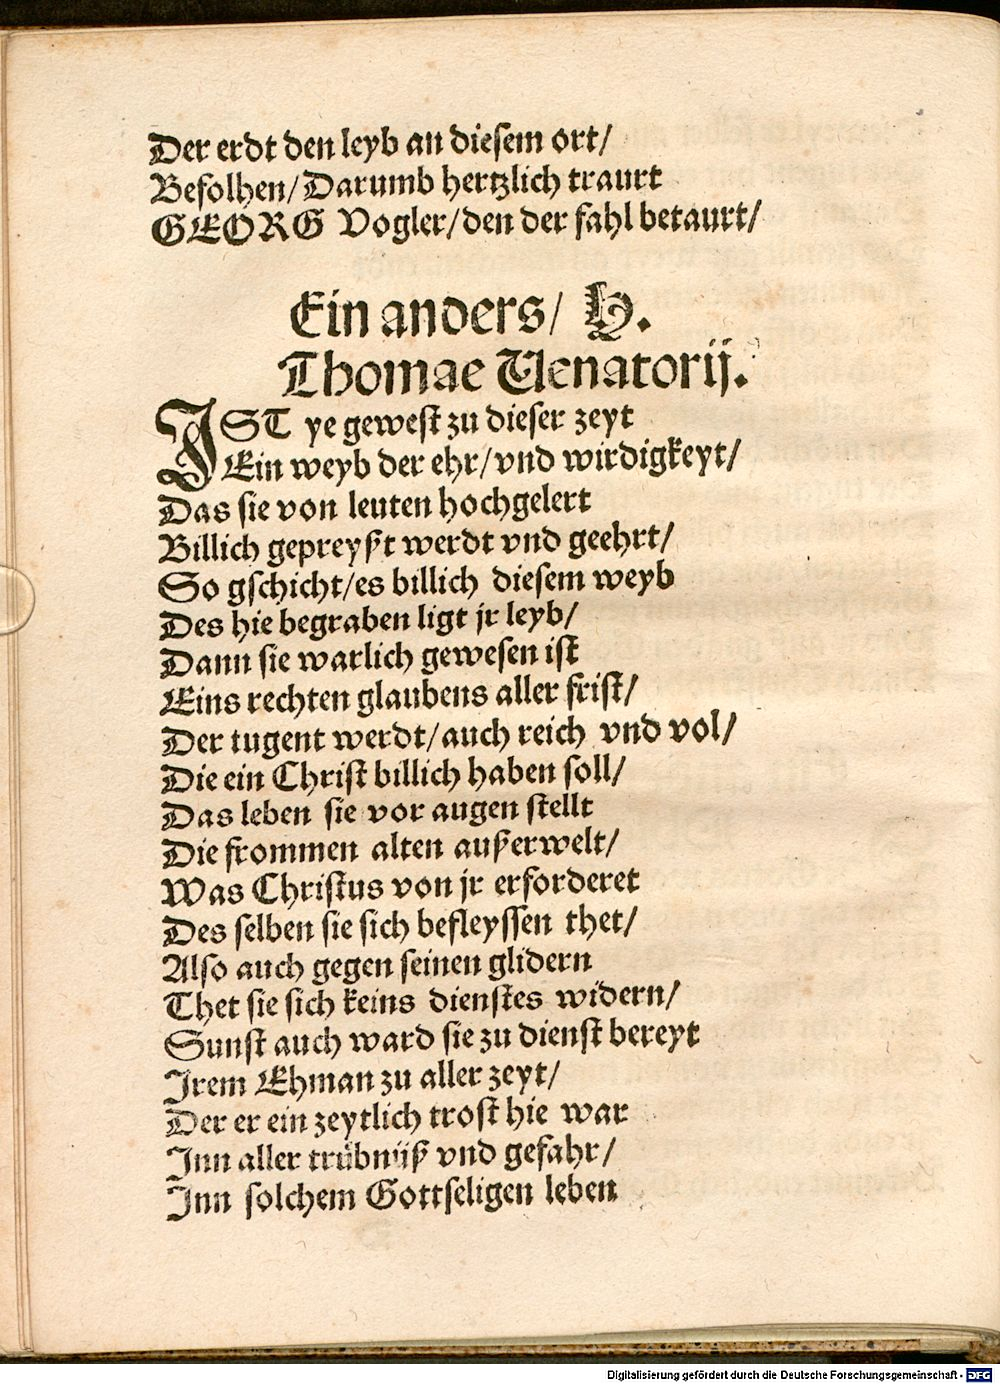 Der erdt den leyb an diesem ort/
Befolhen/Darumb hertzlich traurt
GEORG Vogler/den der fahl betaurt/
Ein anders/ H.
Thomae Venatorij.
IST ye gewest zu dieser zeyt
Ein weyb der ehr/vnd wirdigkeyt/
Das sie von leuten hochgelert
Billich gepreyßt werdt vnd geehrt/
So gschicht/es billich diesem weyb
Des hie begraben ligt jr leyb/
Dann sie warlich gewesen ist
Eins rechten glaubens aller frist/
Der tugent werdt/auch reich vnd vol/
Die ein Christ billich haben soll/
Das leben sie vor augen stellt
Die frommen alten außerwelt/
Was Christus von jr erforderet
Des selben sie sich befleyssen thet/
Also auch gegen seinen glidern
Thet sie sich keins dienstes widern/
Sunst auch ward sie zu dienst bereyt
Irem Ehman zu aller zeyt/
Der er ein zeytlich trost hie war
Inn aller trübnüß vnd gefahr/
Inn solchem Gottseligen leben
Digitalisierung gefördert durch die Deutsche Forschungsgemeinschaft - DFG